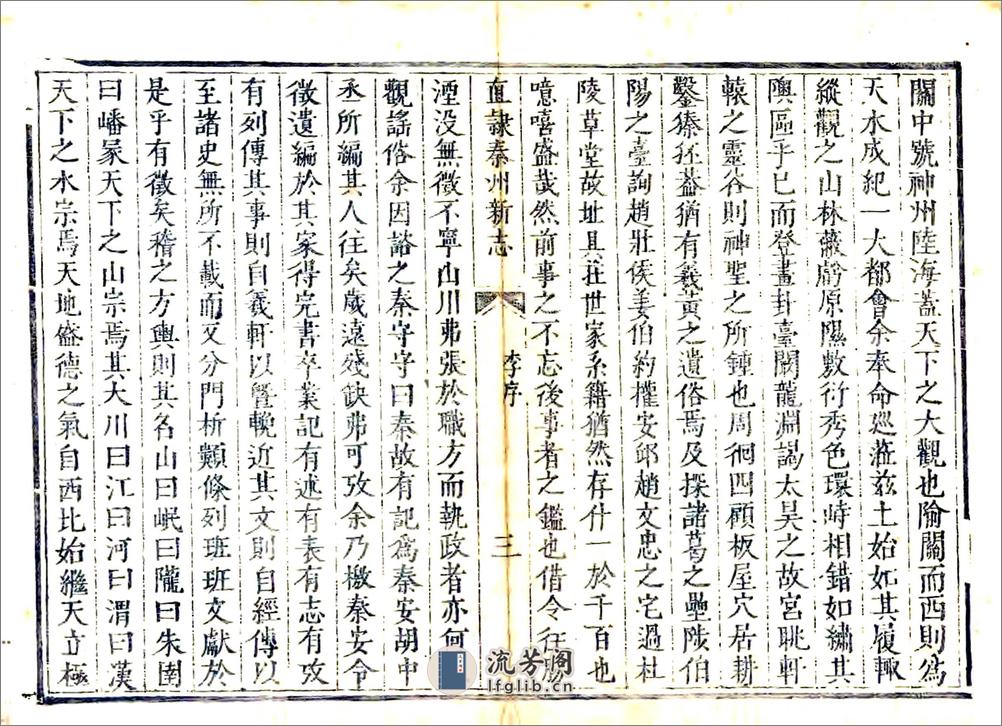 關中號神州陸海蓋天下之大觀也隃關而西則爲
天水成紀一大都會余奉命巡蒞茲土始如其履輙
縱觀之山林蔽蔚原隰敷衍秀色環峙相錯如繡其
輿區乎已而登畫卦臺闞龍淵謁太昊之故宮眺軒
轅之靈谷則神聖之所鍾也周徊四顧板屋穴居耕
鑿獉狉蓋猶有羲黃之遺俗焉及探諸葛之壘陟伯
陽之臺詢趙壯侯姜伯約權安郎趙文忠之宅過杜
陵草堂故址具在世家系籍猶然存什一於千百也
噫嘻盛哉然前事之不忘後事者之鑑也借令往勝
直隷秦州新志
李序
三
湮没無徵不寧山川弗張於職方而執政者亦何
觀謠俗余因諮之秦守守曰秦故有記爲秦安胡中
丞所編其人往矣歲遠殘缺弗可攷余乃檄秦安令
徵遺編於其家得完書卒業記有述有表有志有攷
有列傳其事則自羲軒以曁輓近其文則自經傳以
至諸史無所不載而又分門析類條列班班文獻於
是乎有徵矣稽之方輿則其名山曰岷曰隴曰朱圉
曰嶓冢天下之山宗焉其大川曰江曰河曰渭曰漢
天下之水宗焉天地盛德之氣自西北始繼天立極
流芳阁
lfglib.cn